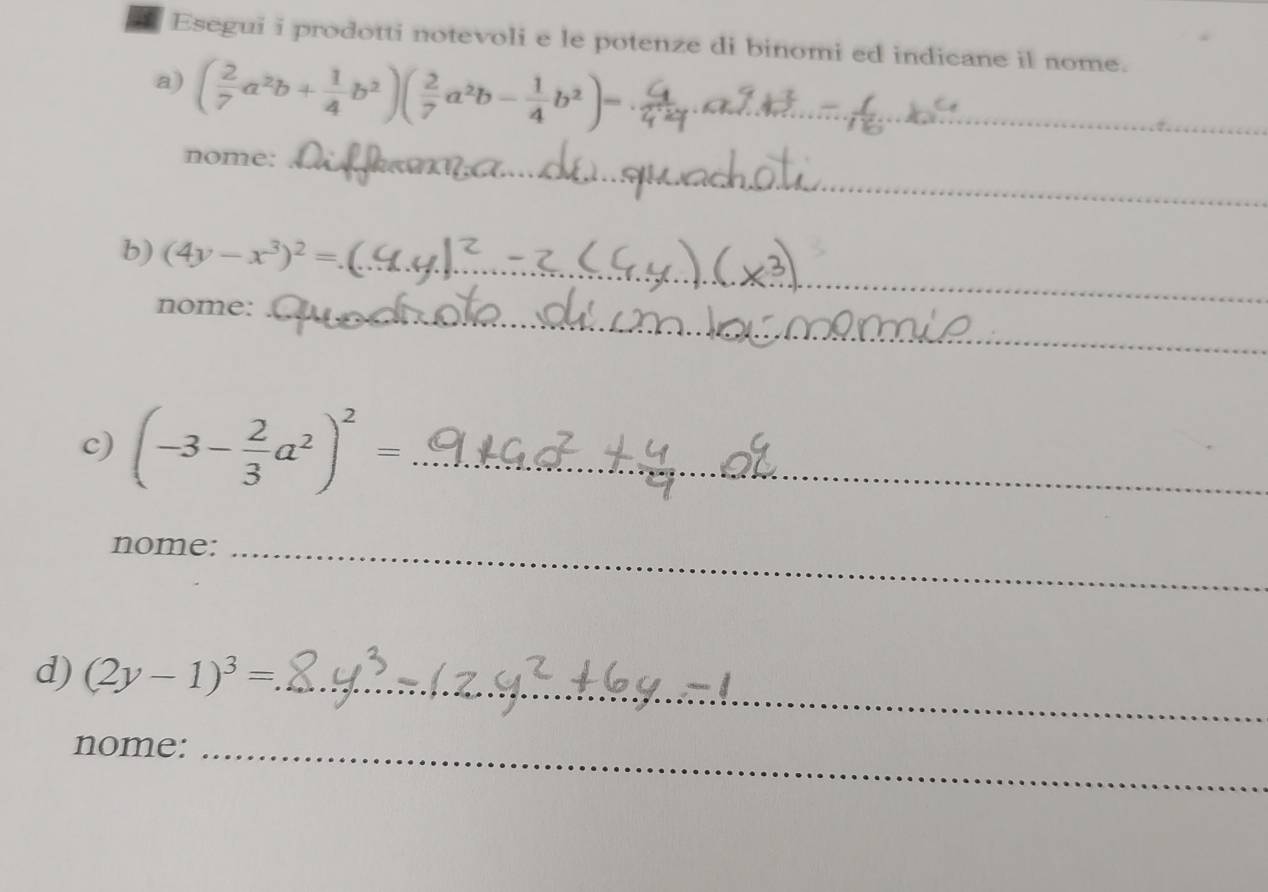 Esegui i prodotti notevoli e le potenze di binomi ed indicane il nome.
a) (2/7 a²b + 1/4 b²)(2/7 a²b − 1/4 b²) = − 1/16 b⁴
nome: Differenza di quadrati
b) (4y − x³)² = (4y)² − 2(4y)(x³)
nome: quadrato di un binomio
c) (−3 − 2/3 a²)² = 9 + 4a² + 4/9 a⁴
nome:
d) (2y − 1)³ = 8y³ − 12y² + 6y − 1
nome: